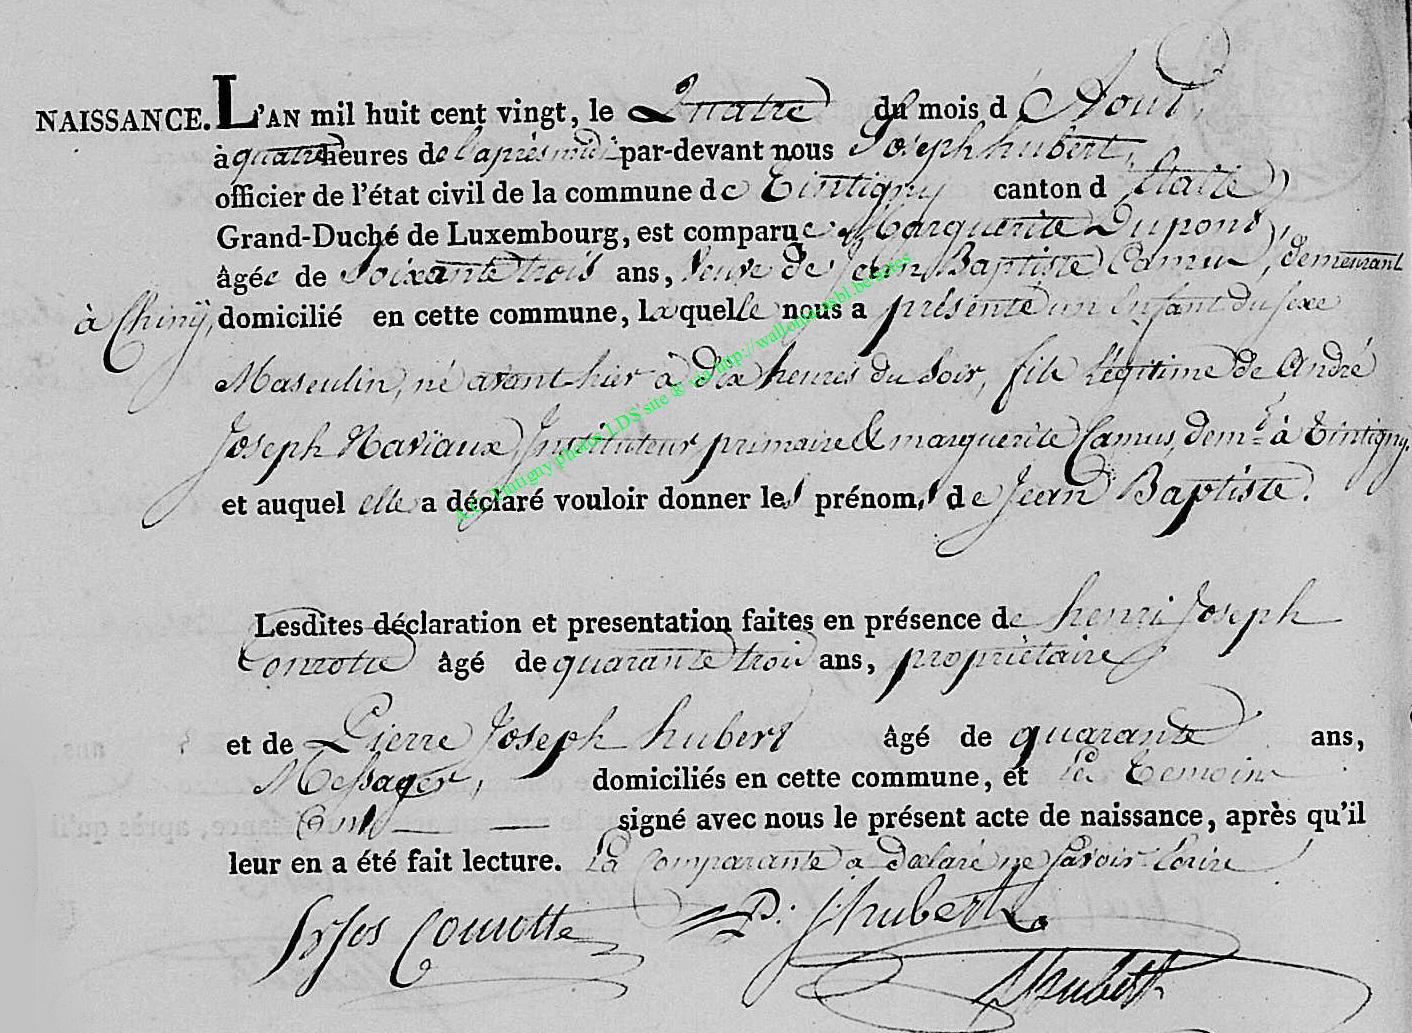 NAISSANCE. L'AN mil huit cent vingt, le Quatre du mois d'Aout,
à quatre heures de l'après midi par-devant nous Joseph hubert,
officier de l'état civil de la commune de Tintigny canton d'Etalle
Grand-Duché de Luxembourg, est comparue Marguerite Dupont,
âgée de Soixante trois ans, Veuve de Jean Baptiste Camus, demeurant
à Chinÿ, domicilié en cette commune, laquelle nous a présenté un Enfant du sexe
Masculin, né avant hier à dix heures du Soir, fils légitime de André
Joseph Naviaux Instituteur primaire & marguerite Camus, demt. à Tintigny.
et auquel elle a déclaré vouloir donner les prénoms de Jean Baptiste.
Lesdites déclaration et presentation faites en présence de henri Joseph
Conrotte âgé de quarante trois ans, propriètaire
et de Pierre Joseph hubert âgé de quarante ans,
Messager, domiciliés en cette commune, et les Temoins
Ont signé avec nous le présent acte de naissance, après qu'il
leur en a été fait lecture. La Comparante a declaré ne savoir Ecrire
Jos Conrotte P. J hubert
J hubert
A.C. Tintigny photos LDS site & via http://wallonia.asbl.be/actes